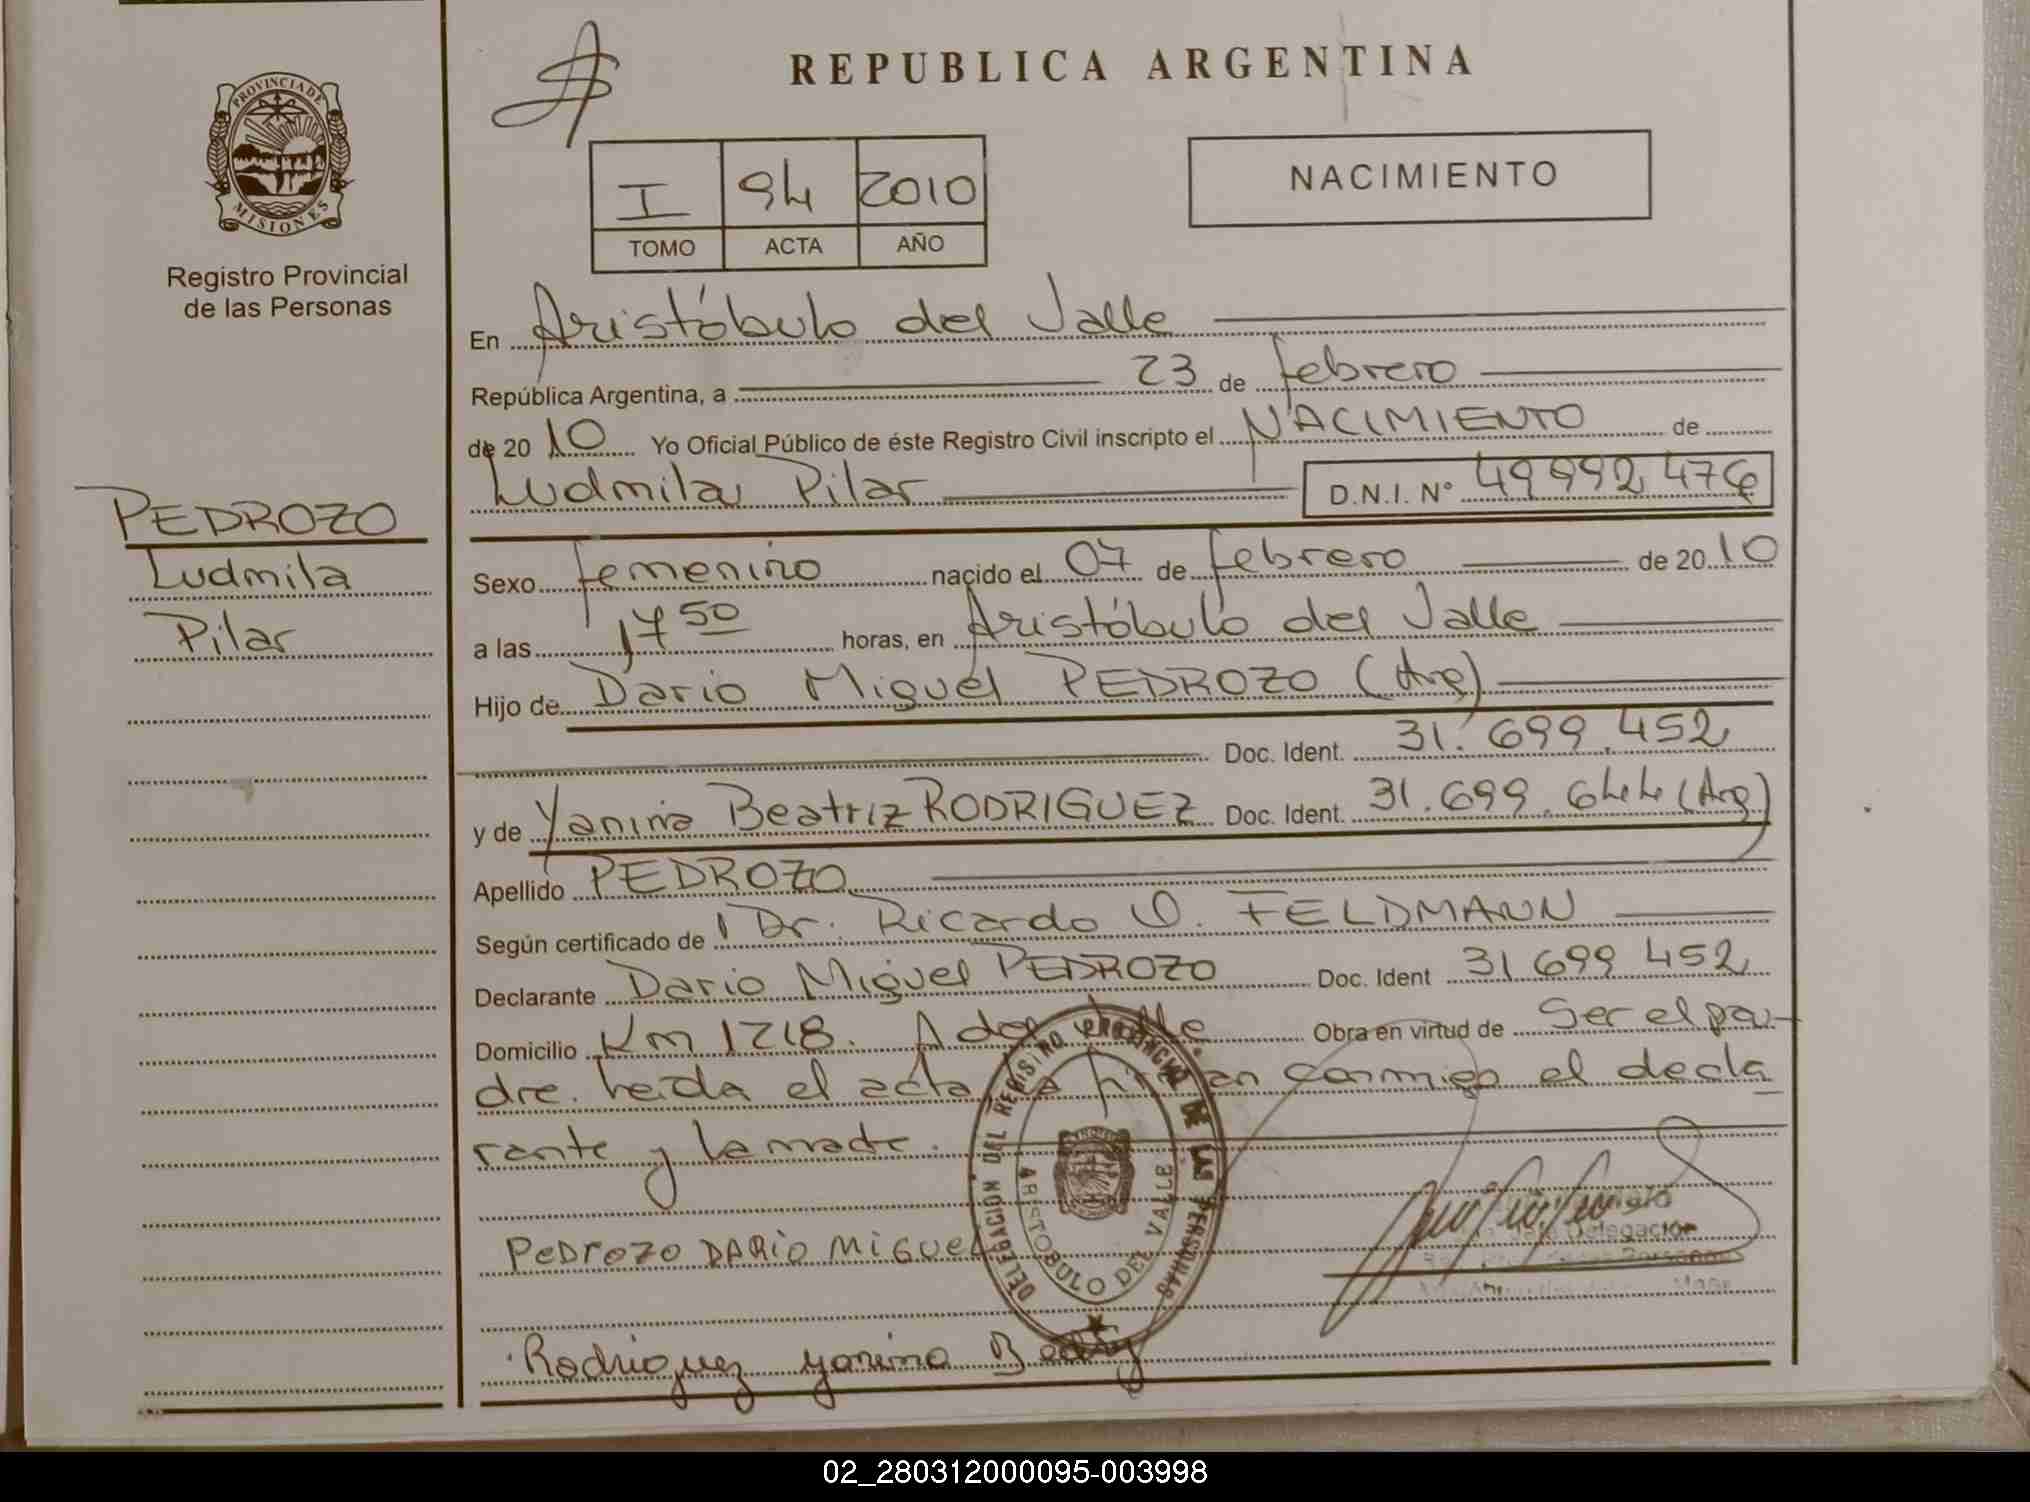 PROVINCIA DE
MISIONES
Registro Provincial
de las Personas
REPUBLICA ARGENTINA
I 94 2010
TOMO ACTA AÑO
NACIMIENTO
En Aristóbulo del Valle
República Argentina, a 23 de febrero
de 20 10 Yo Oficial Público de éste Registro Civil inscripto el NACIMIENTO de
Ludmila Pilar D.N.I. Nº 49992476
PEDROZO
Ludmila
Pilar
Sexo femenino nacido el 07 de febrero de 20 10
a las 17 50 horas, en Aristóbulo del Valle
Hijo de Dario Miguel PEDROZO (Arg)
Doc. Ident. 31.699.452
y de Yanina Beatriz RODRIGUEZ Doc. Ident. 31.699.644 (Arg)
Apellido PEDROZO
Según certificado de Dr. Ricardo O. FELDMANN
Declarante Dario Miguel PEDROZO Doc. Ident 31 699 452
Domicilio Km 1218. A del Valle Obra en virtud de Ser el pa-
dre. Leida el acta la firman conmigo el decla
rante y la madre.
DELEGACION DEL REGISTRO PROVINCIAL DE LAS PERSONAS
ARISTOBULO DEL VALLE
Delegación
PEDROZO DARIO MIGUEL
Rodriguez yanina Beatriz
02_280312000095-003998